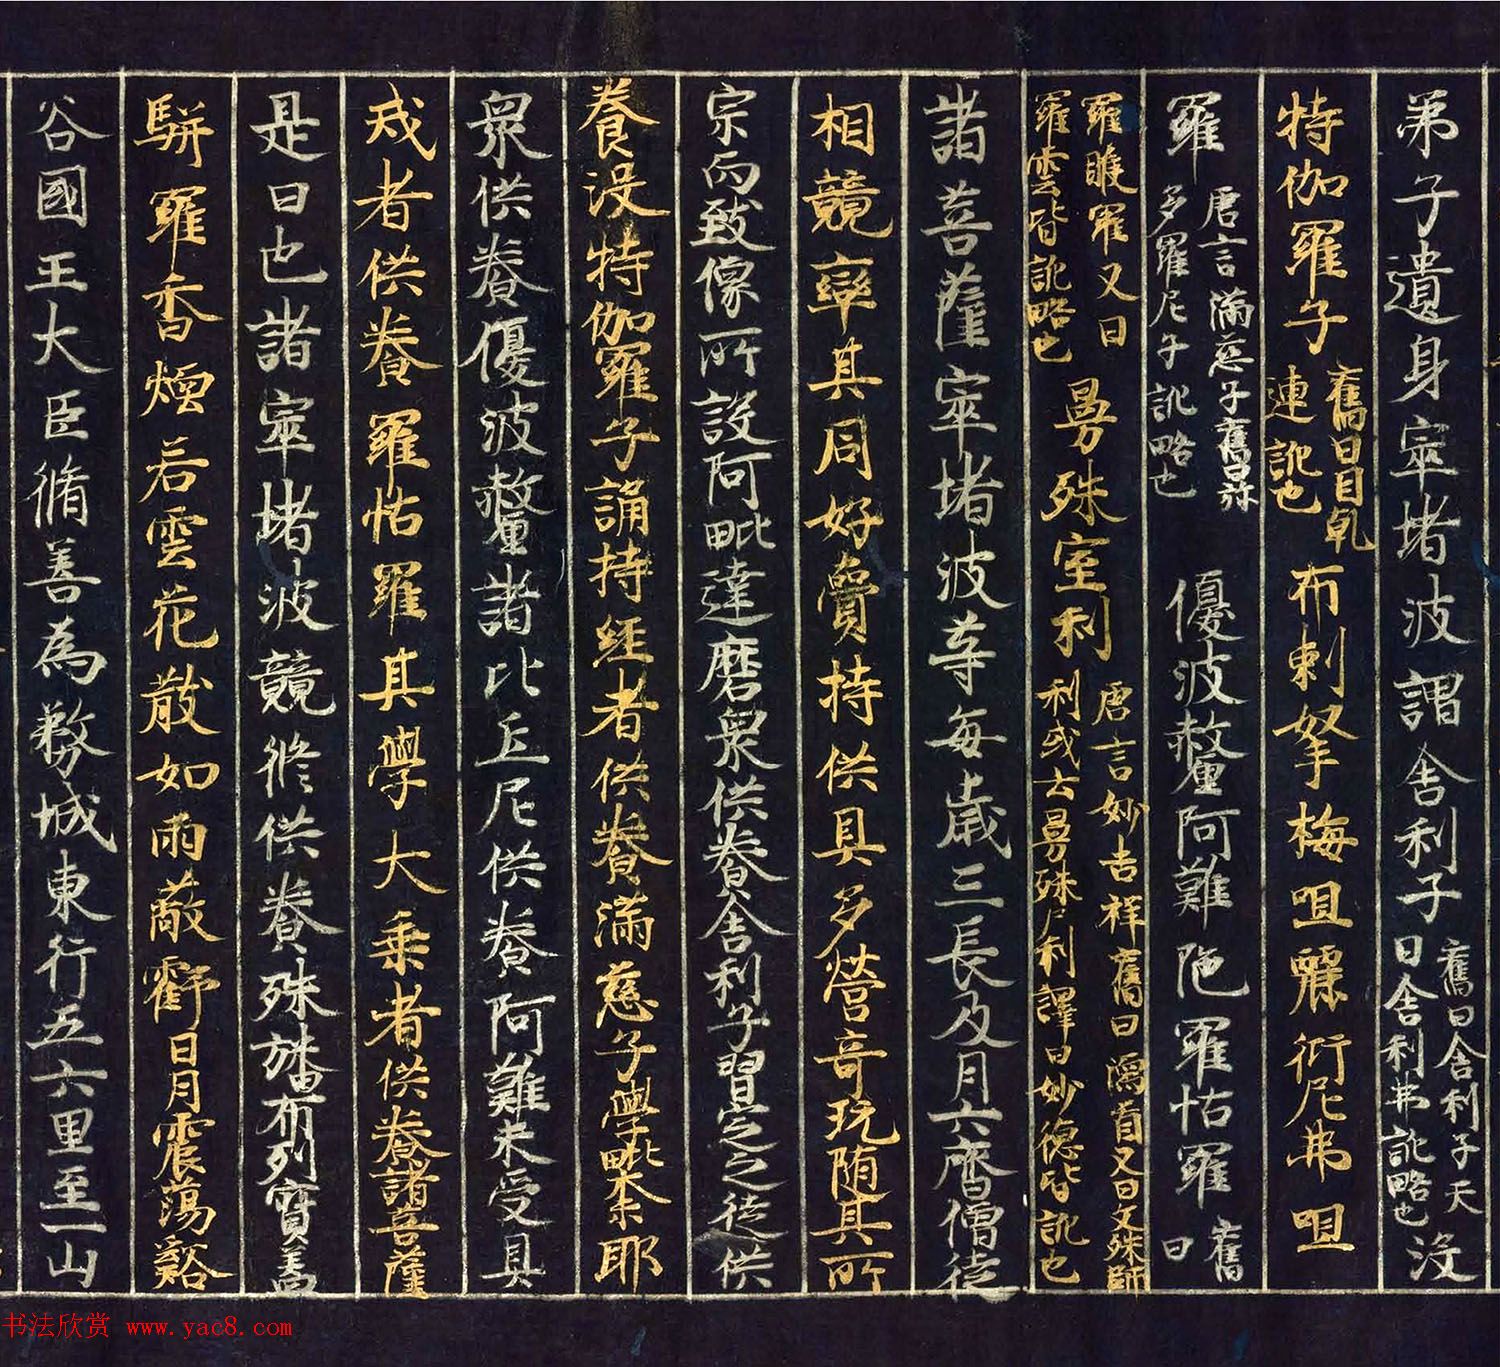 弟子遺身窣堵波謂舍利子舊曰舍利子天曰舍利弗訛略也没
特伽羅子舊曰目乹連訛也布剌拏梅呾麗衍尼弗呾
羅唐言滿慈子舊曰弥多羅尼子訛略也優波釐阿難陁羅怙羅舊曰
羅睺羅又曰羅雲皆訛略也曼殊室利唐言妙吉祥舊曰濡首又曰文殊師利或言曼殊尸利譯曰妙德皆訛也
諸菩薩窣堵波等每歲三長及月六齋僧徒
相競率其同好賷持供具多營奇玩随其所
宗而致像所設阿毗達磨衆供養舍利子習定之徒供
養没特伽羅子誦持經者供養滿慈子學毗柰耶
衆供養優波釐諸比丘尼供養阿難未受具
戒者供養羅怙羅其學大乘者供養諸菩薩
是日也諸窣堵波競修供養殊旛布列寶盖
駢羅香煙若雲花散如雨蔽虧日月震蕩谿
谷國王大臣脩善為務城東行五六里至一山
书法欣赏 www.yac8.com